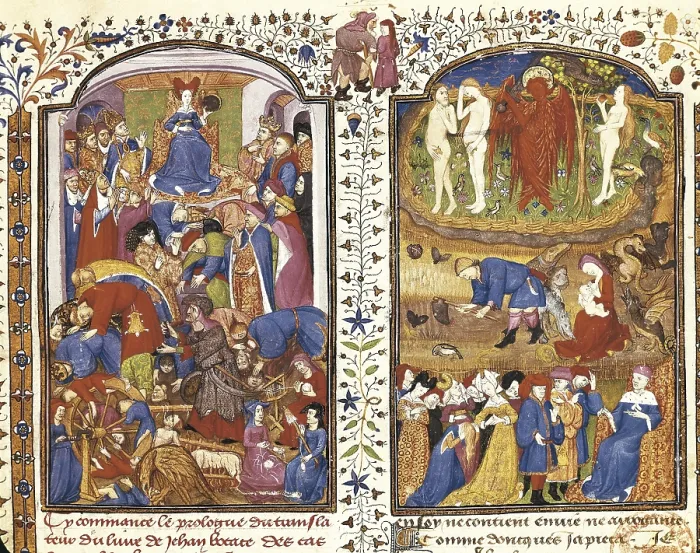 Cy commance le prologue du transla
teur du liure de jehan bocace des cas
en soy ne contient enuie ne arrogance
Comme doncques ja pieca